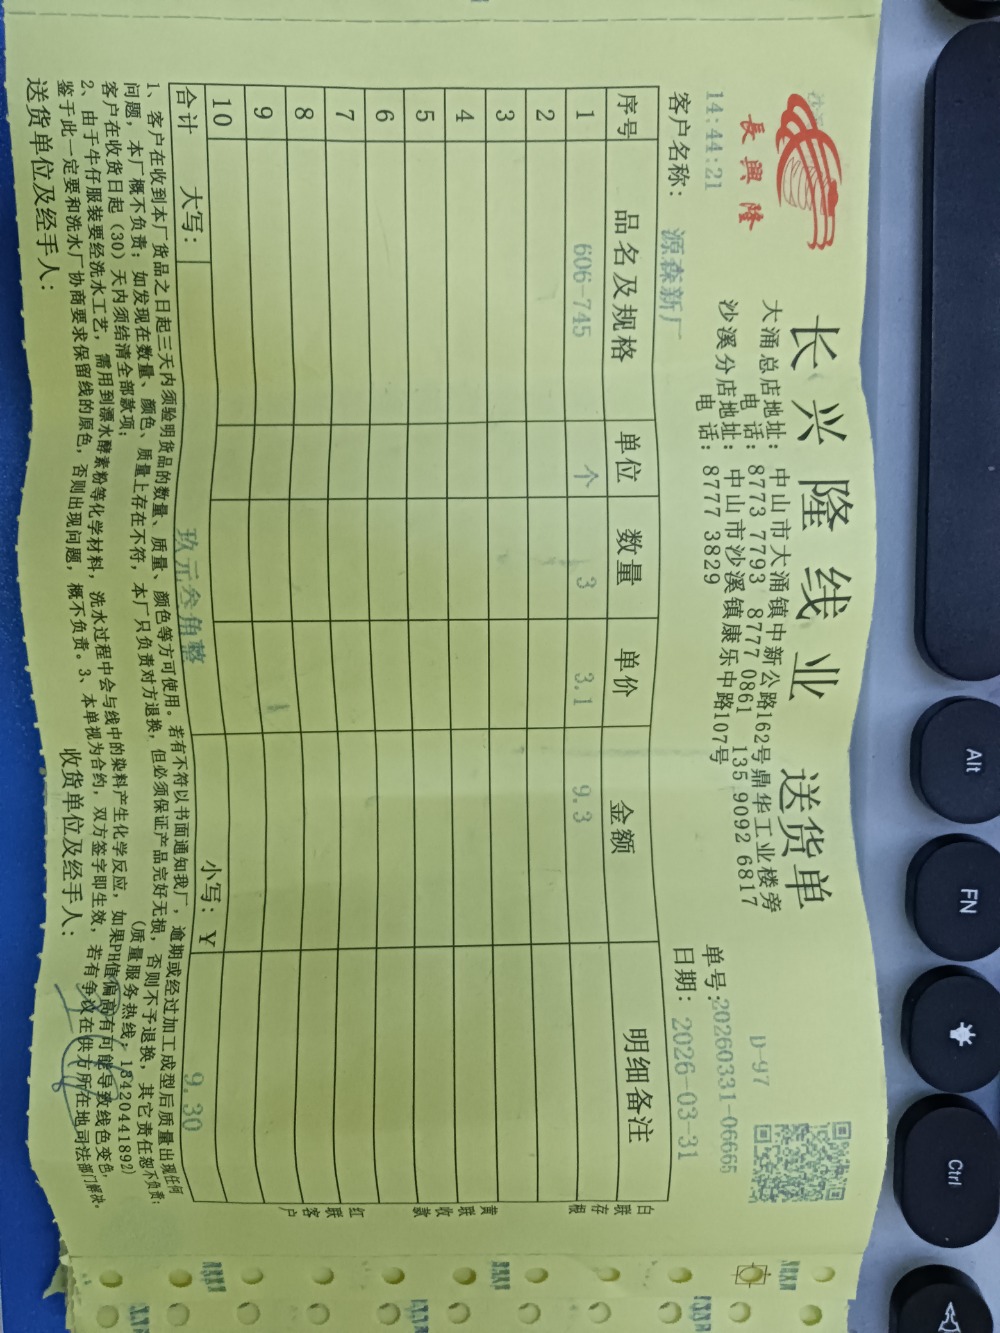 長興隆
长兴隆线业 送货单
大涌总店地址：中山市大涌镇中新公路162号鼎华工业楼旁
电 话：8773 7793 8777 0861 135 9092 6817
沙溪分店地址：中山市沙溪镇康乐中路107号
电 话：8777 3829
D-97
14:44:21
单号:20260331-06665
客户名称： 源森新厂
日期：2026-03-31
序号 品名及规格 单位 数量 单价 金额 明细备注
1 606-745 个 3 3.1 9.3
2
3
4
5
6
7
8
9
10
合计 大写： 玖元叁角整 小写：￥ 9.30
白联存根
黄联收款
红联客户
1、客户在收到本厂货品之日起三天内须验明货品的数量、质量、颜色等方可使用。若有不符以书面通知我厂，逾期或经过加工成型后质量出现任何
问题，本厂概不负责；如发现在数量、颜色、质量上存在不符，本厂只负责对方退换，但必须保证产品完好无损，否则不予退换，其它责任恕不负责；
客户在收货日起（30）天内须结清全部款项； （质量服务热线：18420441892）
2、由于牛仔服装要经洗水工艺，需用到漂水酵素粉等化学材料，洗水过程中会与线中的染料产生化学反应，如果PH值偏高有可能导致线色变色，
鉴于此一定要和洗水厂协商要求保留线的原色，否则出现问题，概不负责。3、本单视为合约，双方签字即生效，若有争议在供方所在地司法部门解决。
送货单位及经手人： 收货单位及经手人：
Alt
FN
Ctrl